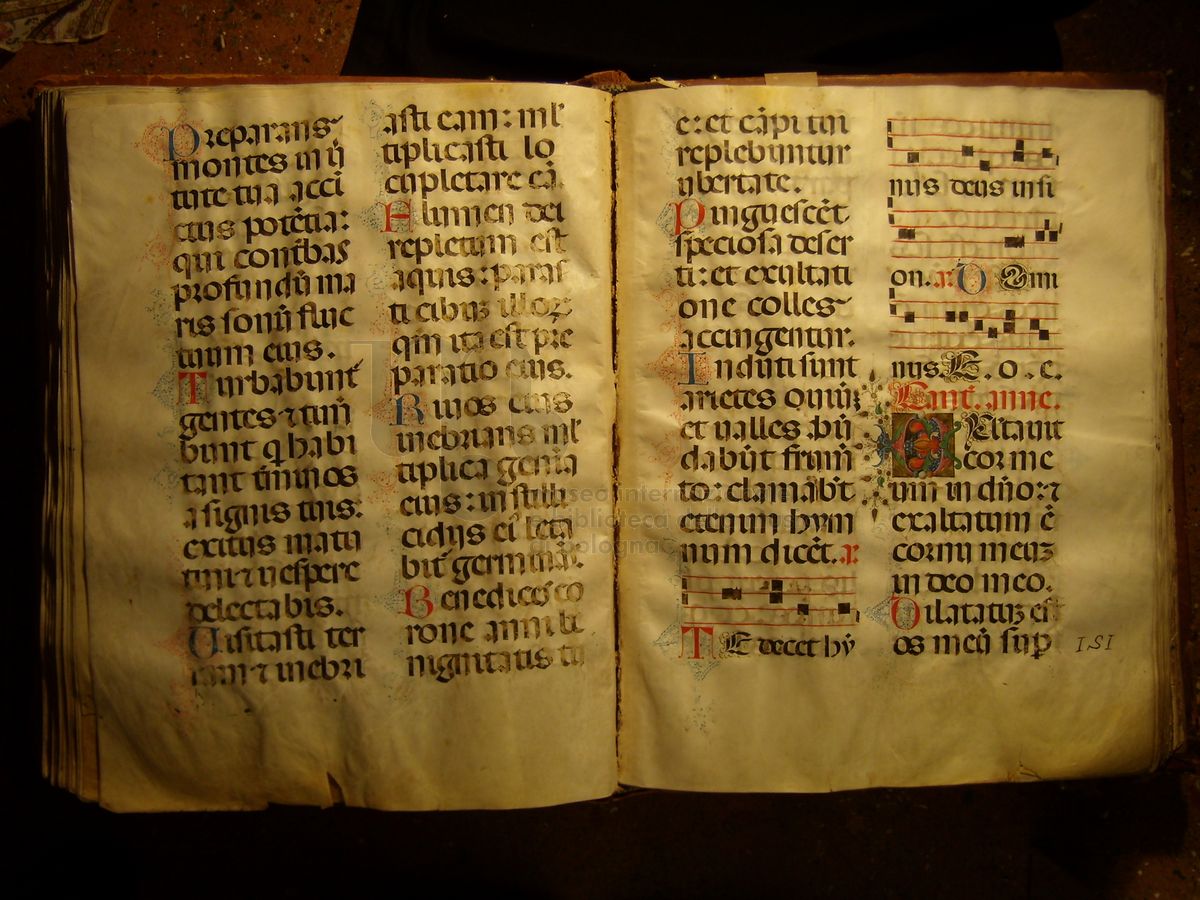 Preparans
montes in ṽ
tute tua acci
ctus potẽtia:
qui conťbas
profundũ ma
ris sonũ fluc
tuum eius.
Turbabunť
gentes ⁊ tim̃
bunt q̃ habi
tant t̃minos
a signis tuis:
exitus matu
tini ⁊ uespere
delectabis.
Uisitasti ter
ram ⁊ inebri
asti eam: ml̃
tiplicasti lo
cupletare eã.
Flumen dei
repletum est
aquis: paras
ti cibuʒ illoꝝ
qm̃ ita est pre
paratio eius.
Riuos eius
inebrians ml̃
tiplica geñia
eius: in stilli
cidijs ei᷒ leta
bit᷑ germinãs.
Benedices co
rone anni be
nignitatis tu
e: et cãpi tui
replebuntur
ubertate.
Pinguescẽt
speciosa deser
ti: et exultati
one colles
accingentur.
Induti sunt
arietes ouiũ
et ualles hũ
dabũt frum̃
to: clamabũt
etenim hym
num dicẽt. a.
TE decet hỹ
nus deus in si
on. a. D Omi
nus. E. o. e.
Cant. anne.
EXltauit
cor me
um in dño: ⁊
exaltatum ẽ
cornu meuʒ
in deo meo.
Dilatatuʒ est
os meũ sup̃
151